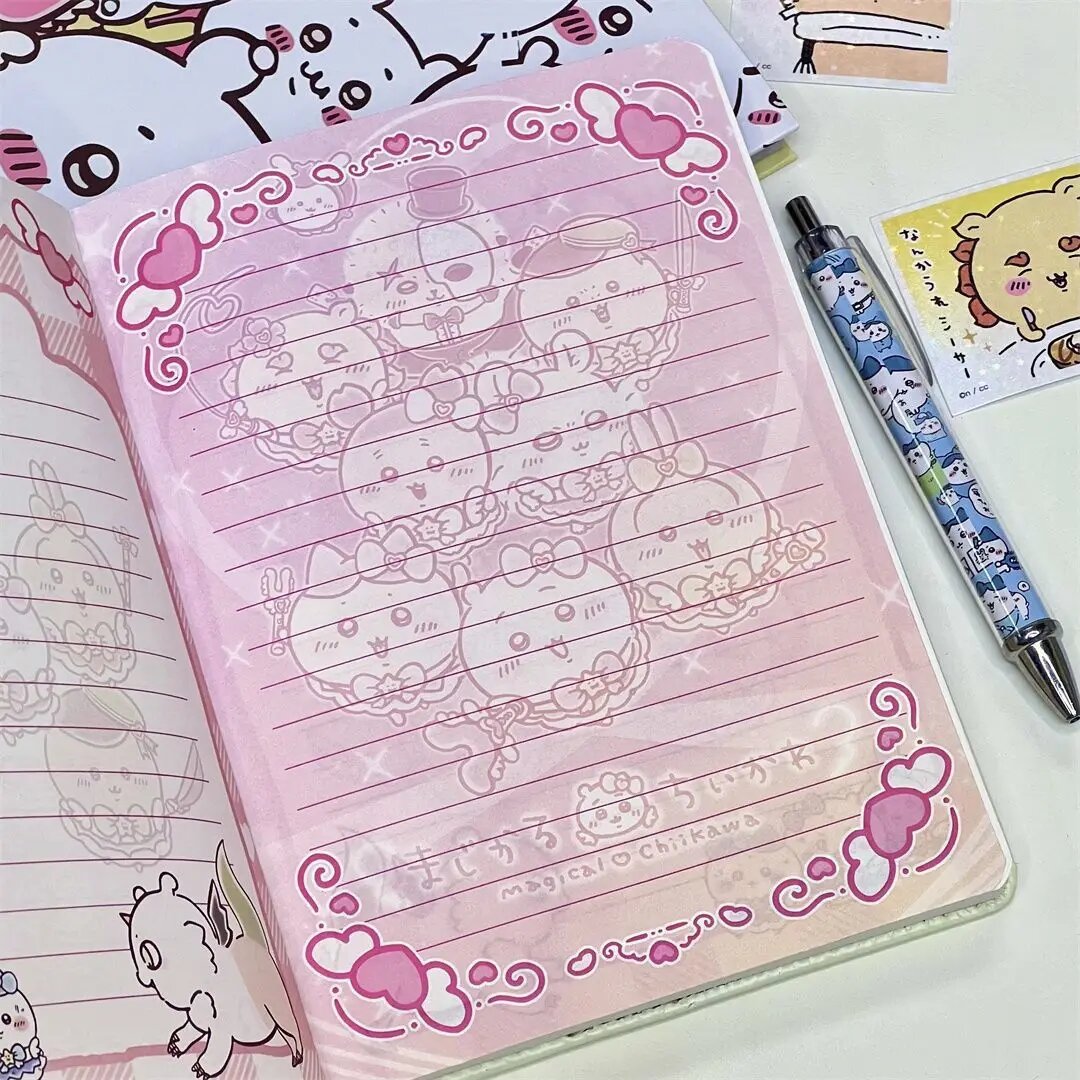 n / cc
なんかつれコーナー
©n / cc
まじかる ちいかわ
magical♡Chiikawa